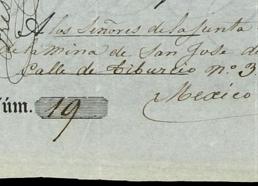 A los Señores de la Junta
de la Mina de San Jose de
Calle de Tiburcio nº 3
Mexico
Núm. 19